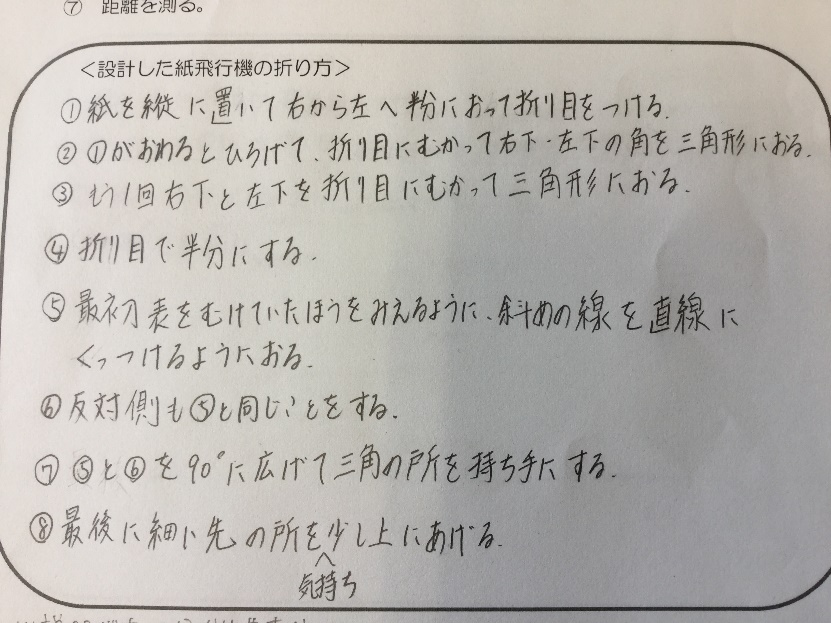 ⑦ 距離を測る。
<設計した紙飛行機の折り方>
①紙を縦に置いて右から左へ半分におって折り目をつける。
②①がおわるとひろげて、折り目にむかって右下・左下の角を三角形におる。
③もう1回右下と左下を折り目にむかって三角形におる。
④折り目で半分にする。
⑤最初表をむけていたほうをみえるように、斜めの線を直線に
くっつけるようにおる。
⑥反対側も⑤と同じことをする。
⑦⑤と⑥を90°に広げて三角の所を持ち手にする。
⑧最後に細い先の所を少し上にあげる。
気持ち